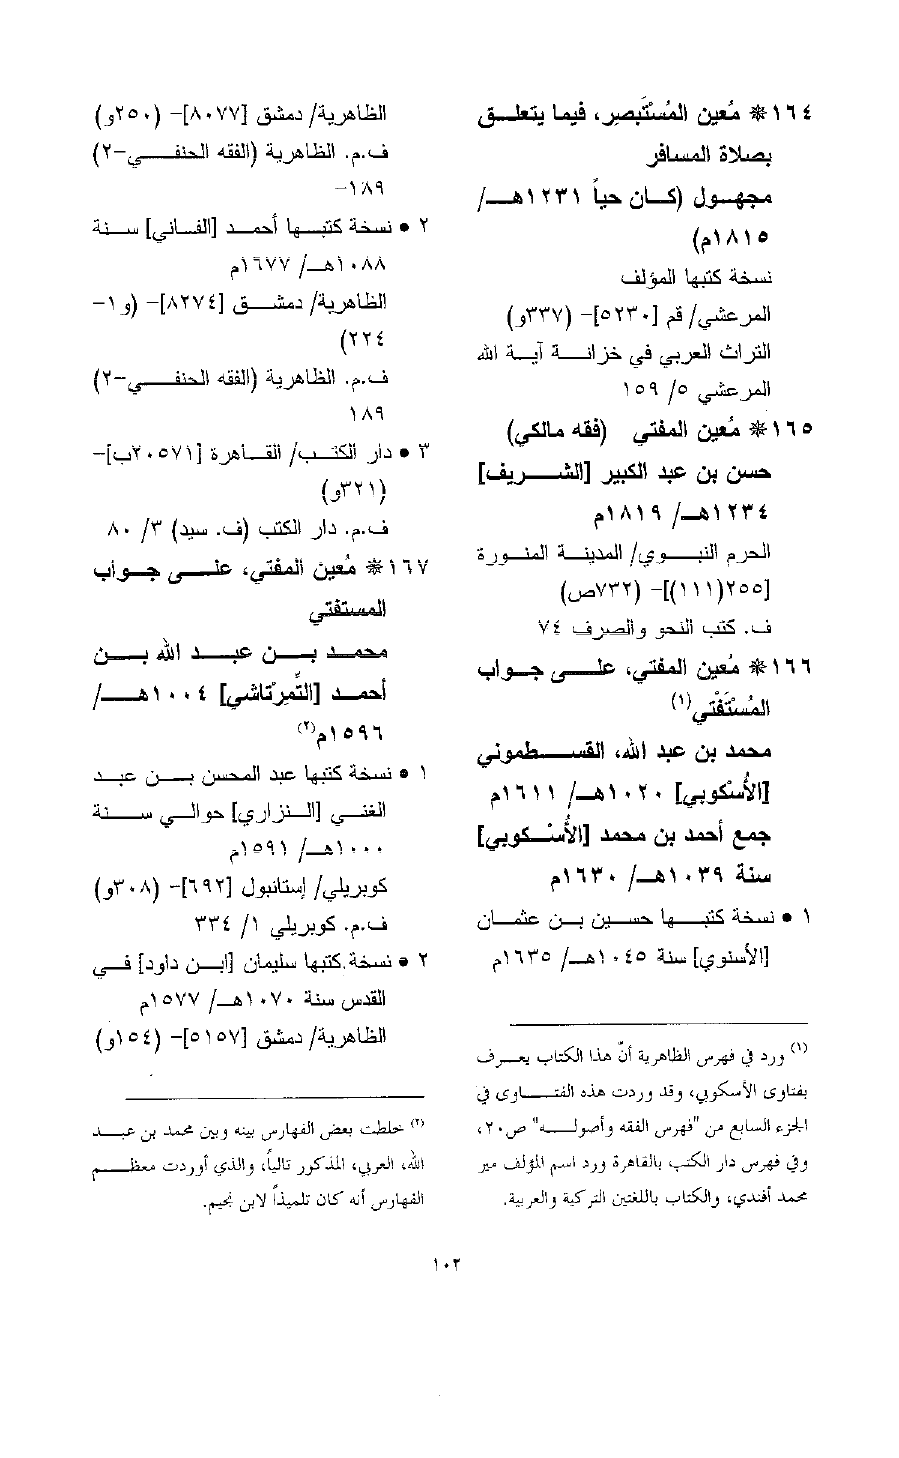 ١٦٤* مُعين المُسْتَبصِر، فيما يتعلق
بصلاة المسافر
مجهول (كان حياً ١٢٣١هـ/
١٨١٥م)
نسخة كتبها المؤلف
المرعشي/ قم [٥٢٣٠]- (٣٣٧و)
التراث العربي في خزانة آية الله
المرعشي ٥/ ١٥٩
١٦٥* مُعين المفتي (فقه مالكي)
حسن بن عبد الكبير [الشريف]
١٢٣٤هـ/ ١٨١٩م
الحرم النبوي/ المدينة المنورة
[٢٥٥(١١١)]- (٧٣٢ص)
ف. كتب النحو والصرف ٧٤
١٦٦* مُعين المفتي، على جواب
المُسْتَفْتي(١)
محمد بن عبد الله، القسطموني
[الأُسْكوبي] ١٠٢٠هـ/ ١٦١١م
جمع أحمد بن محمد [الأُسْكوبي]
سنة ١٠٣٩هـ/ ١٦٣٠م
١ • نسخة كتبها حسين بن عثمان
[الأسنوي] سنة ١٠٤٥هـ/ ١٦٣٥م
(١) ورد في فهرس الظاهرية أنّ هذا الكتاب يعرف
بفتاوى الأسكوبي، وقد وردت هذه الفتاوى في
الجزء السابع من "فهرس الفقه وأصوله" ص٢٠،
وفي فهرس دار الكتب بالقاهرة ورد اسم المؤلف مير
محمد أفندي، والكتاب باللغتين التركية والعربية.
الظاهرية/ دمشق [٨٠٧٧]- (٢٥٠و)
ف.م. الظاهرية (الفقه الحنفي-٢)
١٨٩-
٢ • نسخة كتبها أحمد [الفاني] سنة
١٠٨٨هـ/ ١٦٧٧م
الظاهرية/ دمشق [٨٢٧٤]- (و١-
٢٢٤)
ف.م. الظاهرية (الفقه الحنفي-٢)
١٨٩
٣ • دار الكتب/ القاهرة [٢٠٥٧١ب]-
(٣٢١و)
ف.م. دار الكتب (ف. سيد) ٣/ ٨٠
١٦٧* مُعين المفتي، على جواب
المستفتي
محمد بن عبد الله بن
أحمد [التُّمرْتاشي] ١٠٠٤هـ/
١٥٩٦م(٢)
١ • نسخة كتبها عبد المحسن بن عبد
الغني [النزاري] حوالي سنة
١٠٠٠هـ/ ١٥٩١م
كوبريلي/ إستانبول [٦٩٢]- (٣٠٨و)
ف.م. كوبريلي ١/ ٣٣٤
٢ • نسخة كتبها سليمان [ابن داود] في
القدس سنة ١٠٧٠هـ/ ١٥٧٧م
الظاهرية/ دمشق [٥١٥٧]- (١٥٤و)
(٢) خلطت بعض الفهارس بينه وبين محمد بن عبد
الله، العربي، المذكور تالياً، والذي أوردت معظم
الفهارس أنه كان تلميذاً لابن نجيم.
١٠٢